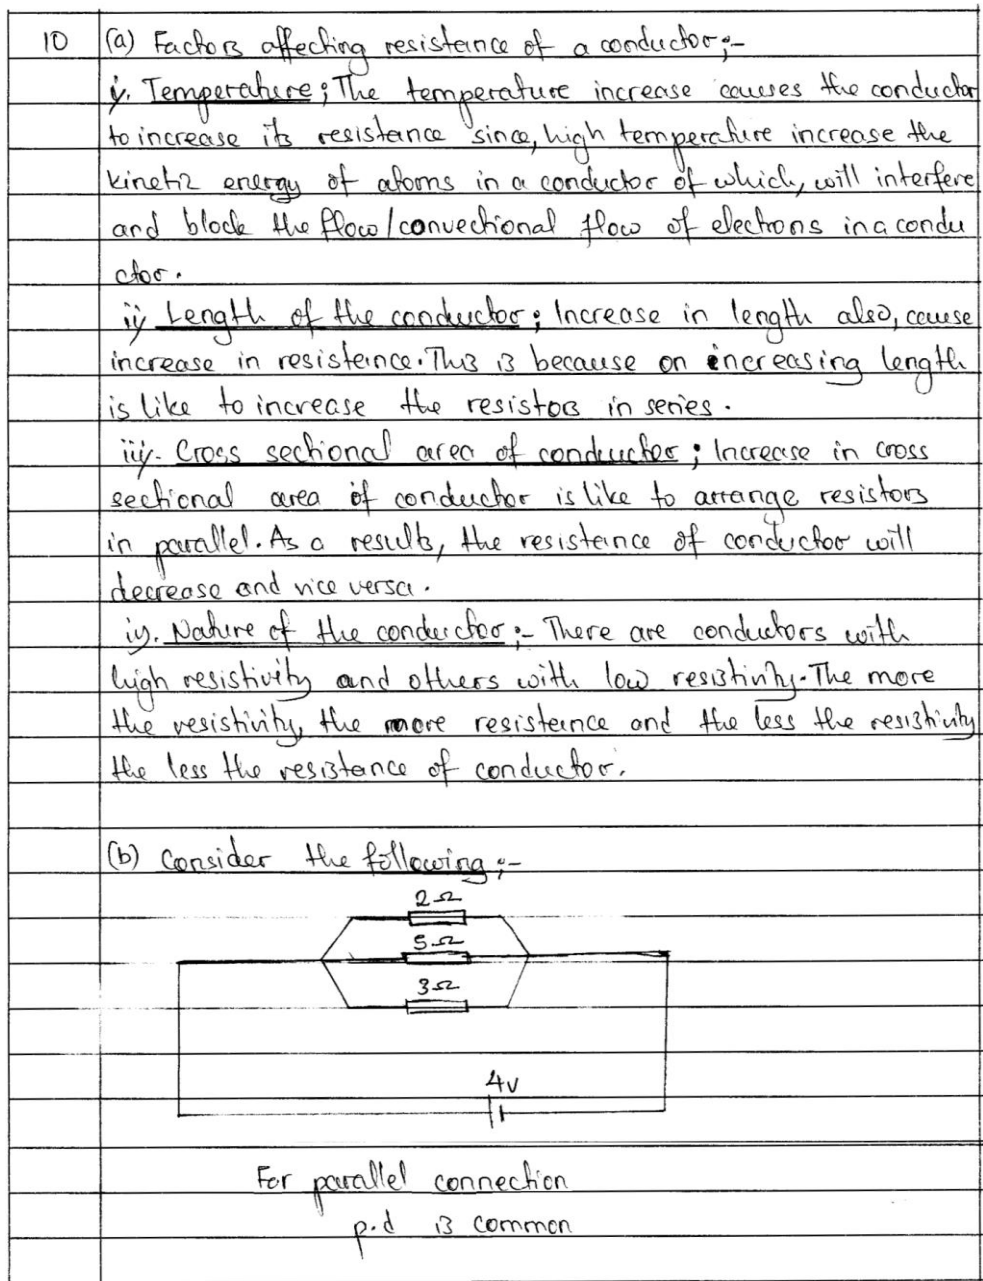 10 (a) Factors affecting resistance of a conductor;-
i. Temperature; The temperature increase causes the conductor
to increase its resistance since, high temperature increase the
kinetic energy of atoms in a conductor of which, will interfere
and block the flow/convectional flow of electrons in a condu
ctor.
ii) Length of the conductor; Increase in length also, cause
increase in resistance. This is because on increasing length
is like to increase the resistors in series.
iii). Cross sectional area of conductor; Increase in cross
sectional area of conductor is like to arrange resistors
in parallel. As a results, the resistance of conductor will
decrease and vice versa.
iv). Nature of the conductor;- There are conductors with
high resistivity and others with low resistivity. The more
the resistivity, the more resistance and the less the resistivity
the less the resistance of conductor.
(b) Consider the following;-
2Ω
5Ω
3Ω
4V
For parallel connection
p.d is common